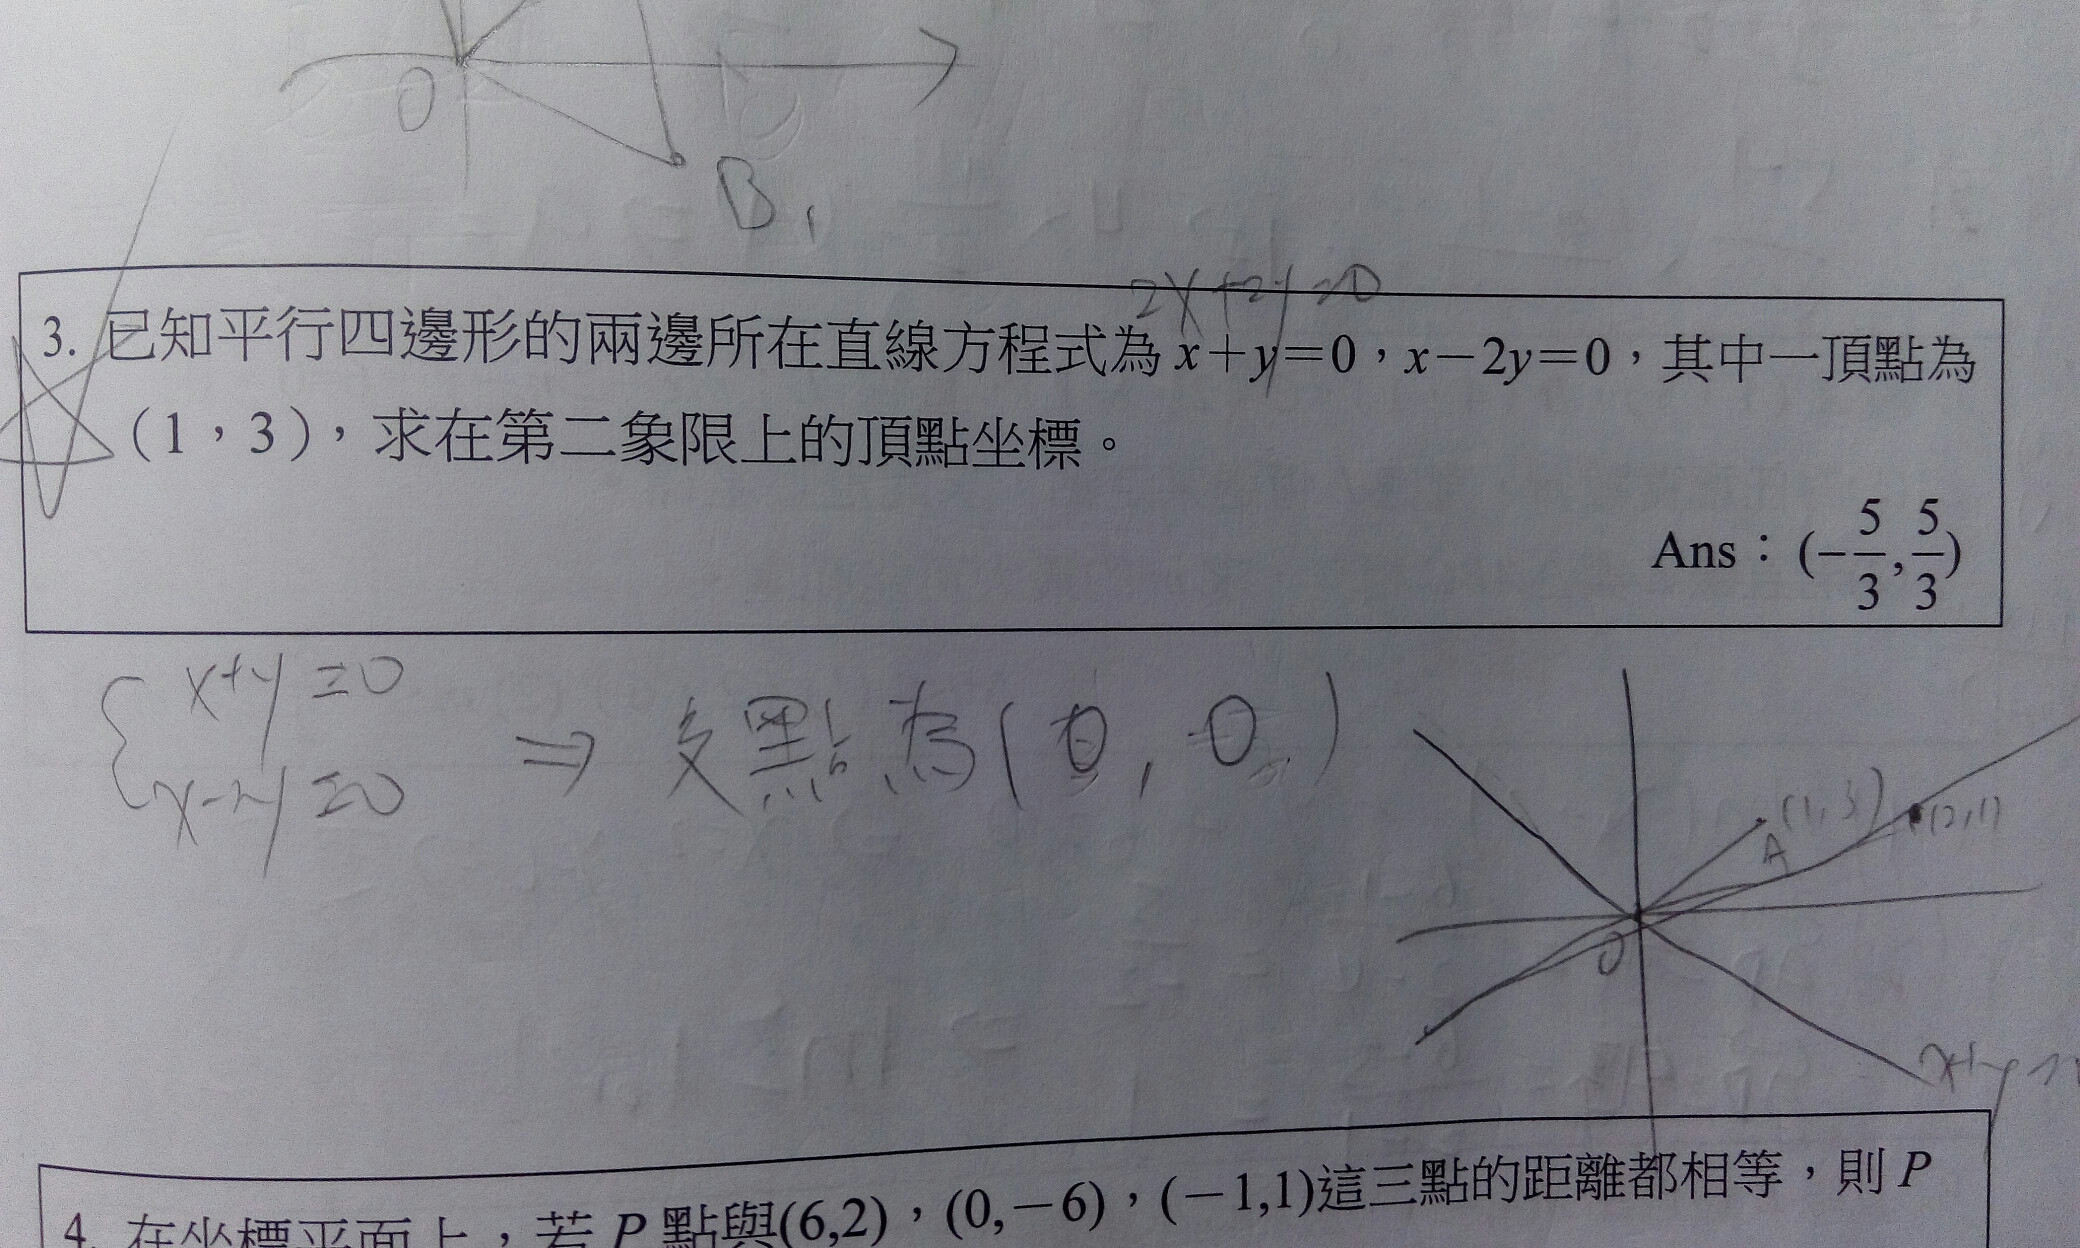 O
B₁
2x+2y=0
3. 已知平行四邊形的兩邊所在直線方程式為 x+y=0,x-2y=0,其中一頂點為
(1,3),求在第二象限上的頂點坐標。
Ans:(-5/3, 5/3)
x+y=0
x-2y=0
⇒ 交點為(0, 0)
(1,3)
(2,1)
A
O
4. 在坐標平面上,若 P 點與(6,2),(0,-6),(-1,1)這三點的距離都相等,則 P